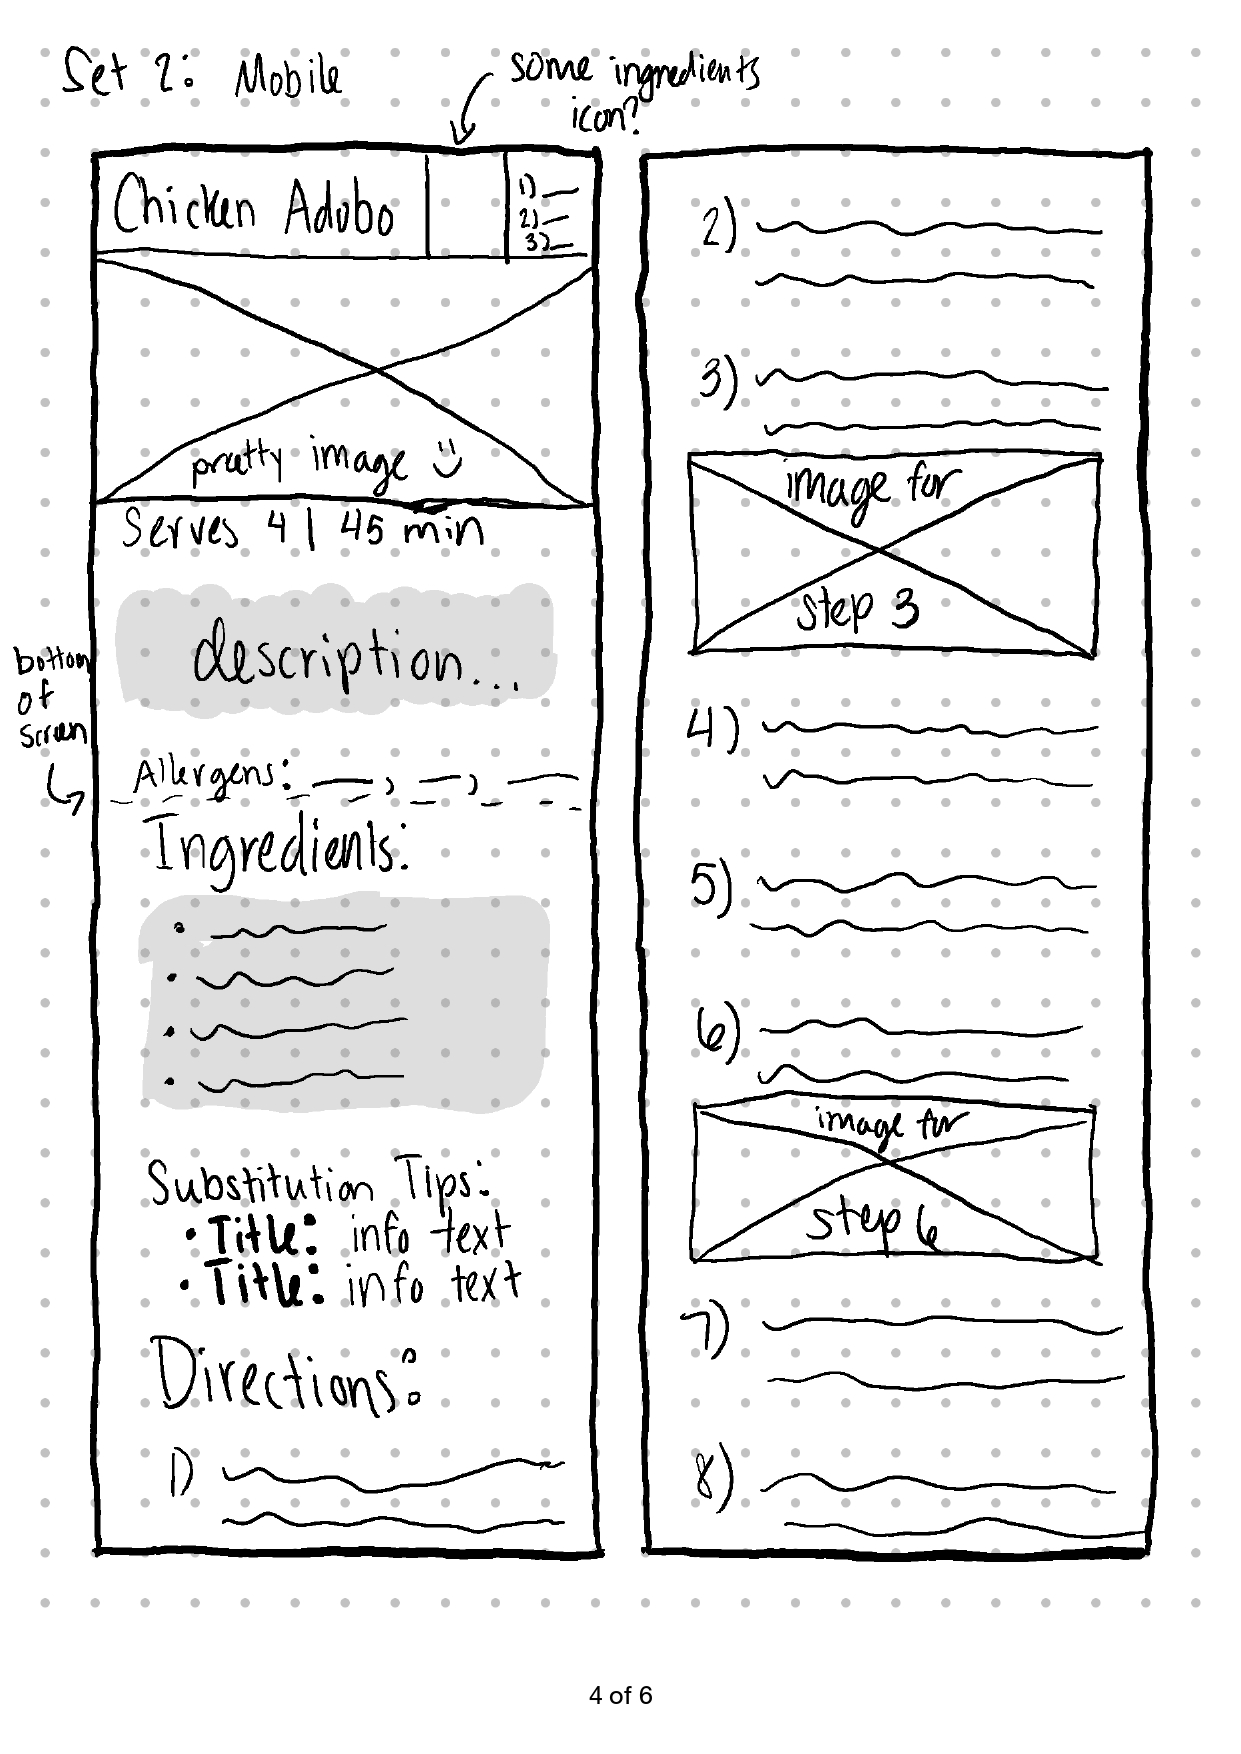 Set 2: Mobile
some ingredients
icon?
Chicken Adobo
1)
2)
3)
pretty image
Serves 4 | 45 min
description...
bottom
of
screen
Allergens: , ,
Ingredients:
Substitution Tips:
• Title: info text
• Title: info text
Directions:
1)
2)
3)
image for
step 3
4)
5)
6)
image for
step 6
7)
8)
4 of 6